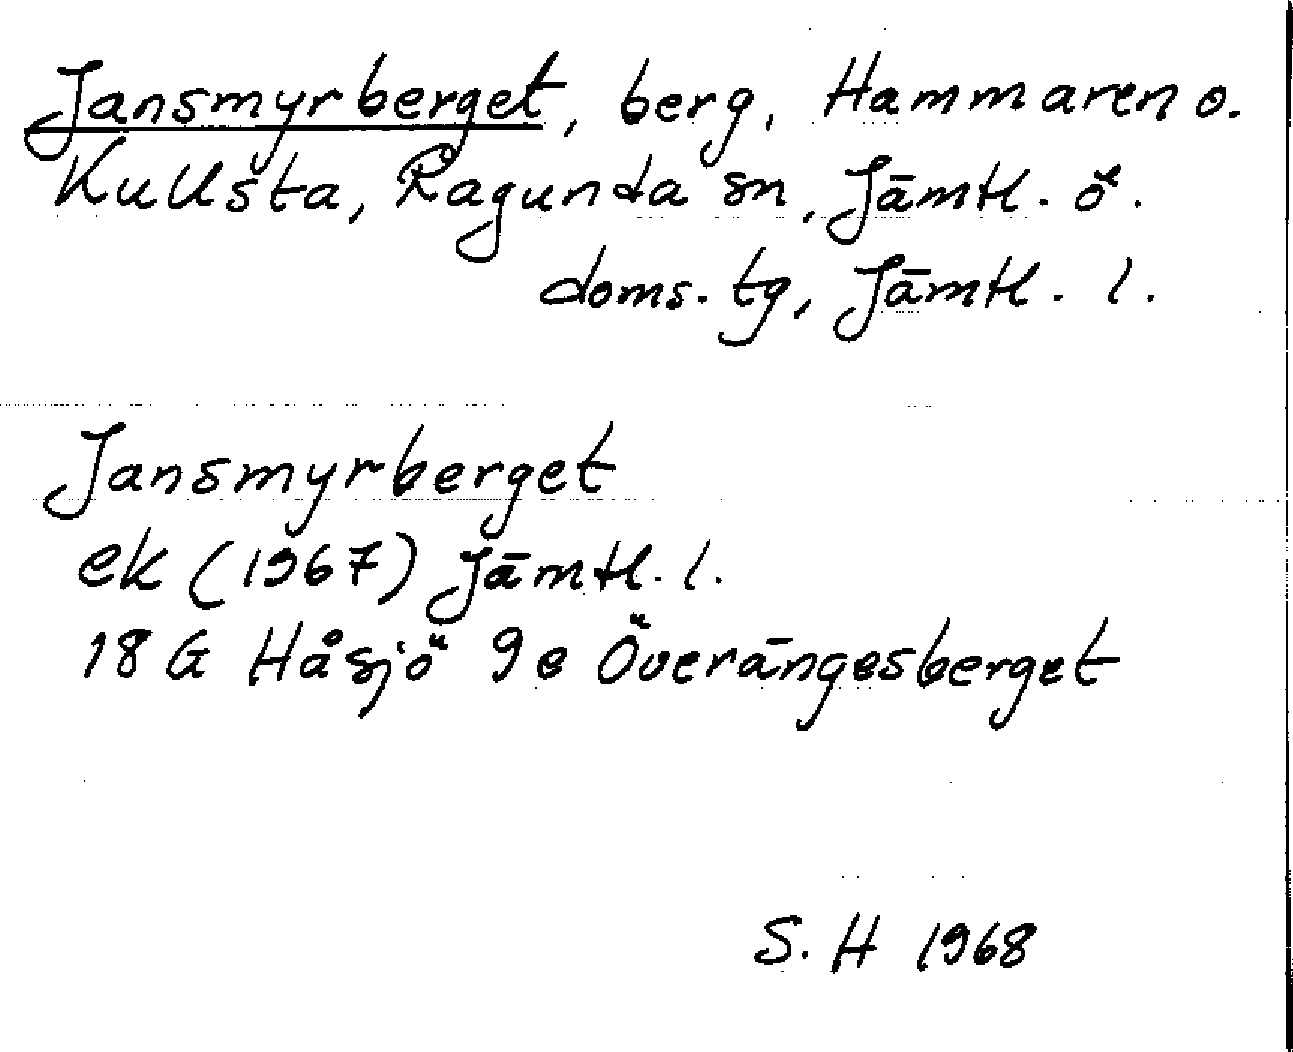 Jansmyrberget, berg, Hammaren o.
Kullsta, Ragunda sn, Jämtl. ö.
doms. tg, Jämtl. l.
Jansmyrberget
ek (1967) Jämtl. l.
18 G Håsjö 9e Överängesberget
S. H 1968